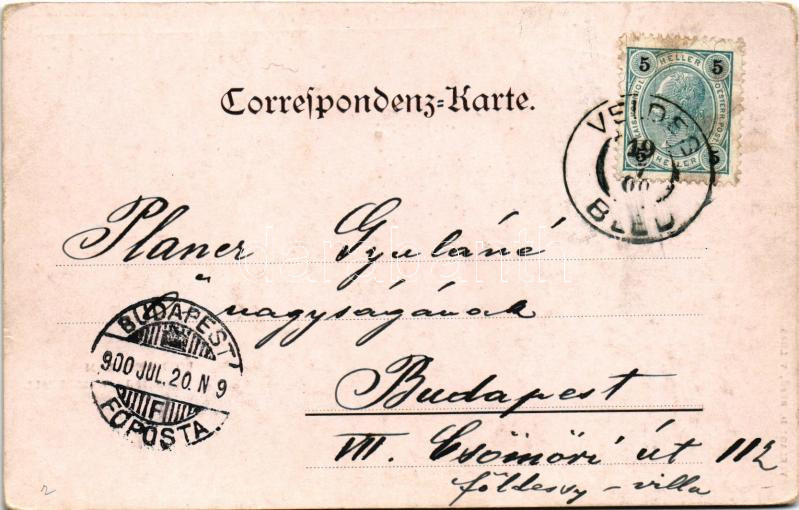 Correſpondenz-Karte.
5 HELLER 5
KAIS. KÖNIGL. OESTERR. POST
5 HELLER 5
VELDES
19
7
00
BLED
Planer Gyuláné
Ő nagyságának
BUDAPEST
900 JUL. 20. N 9
F
FŐPOSTA
Budapest
VII. Csömöri út 112
földesvy - villa
darabanth